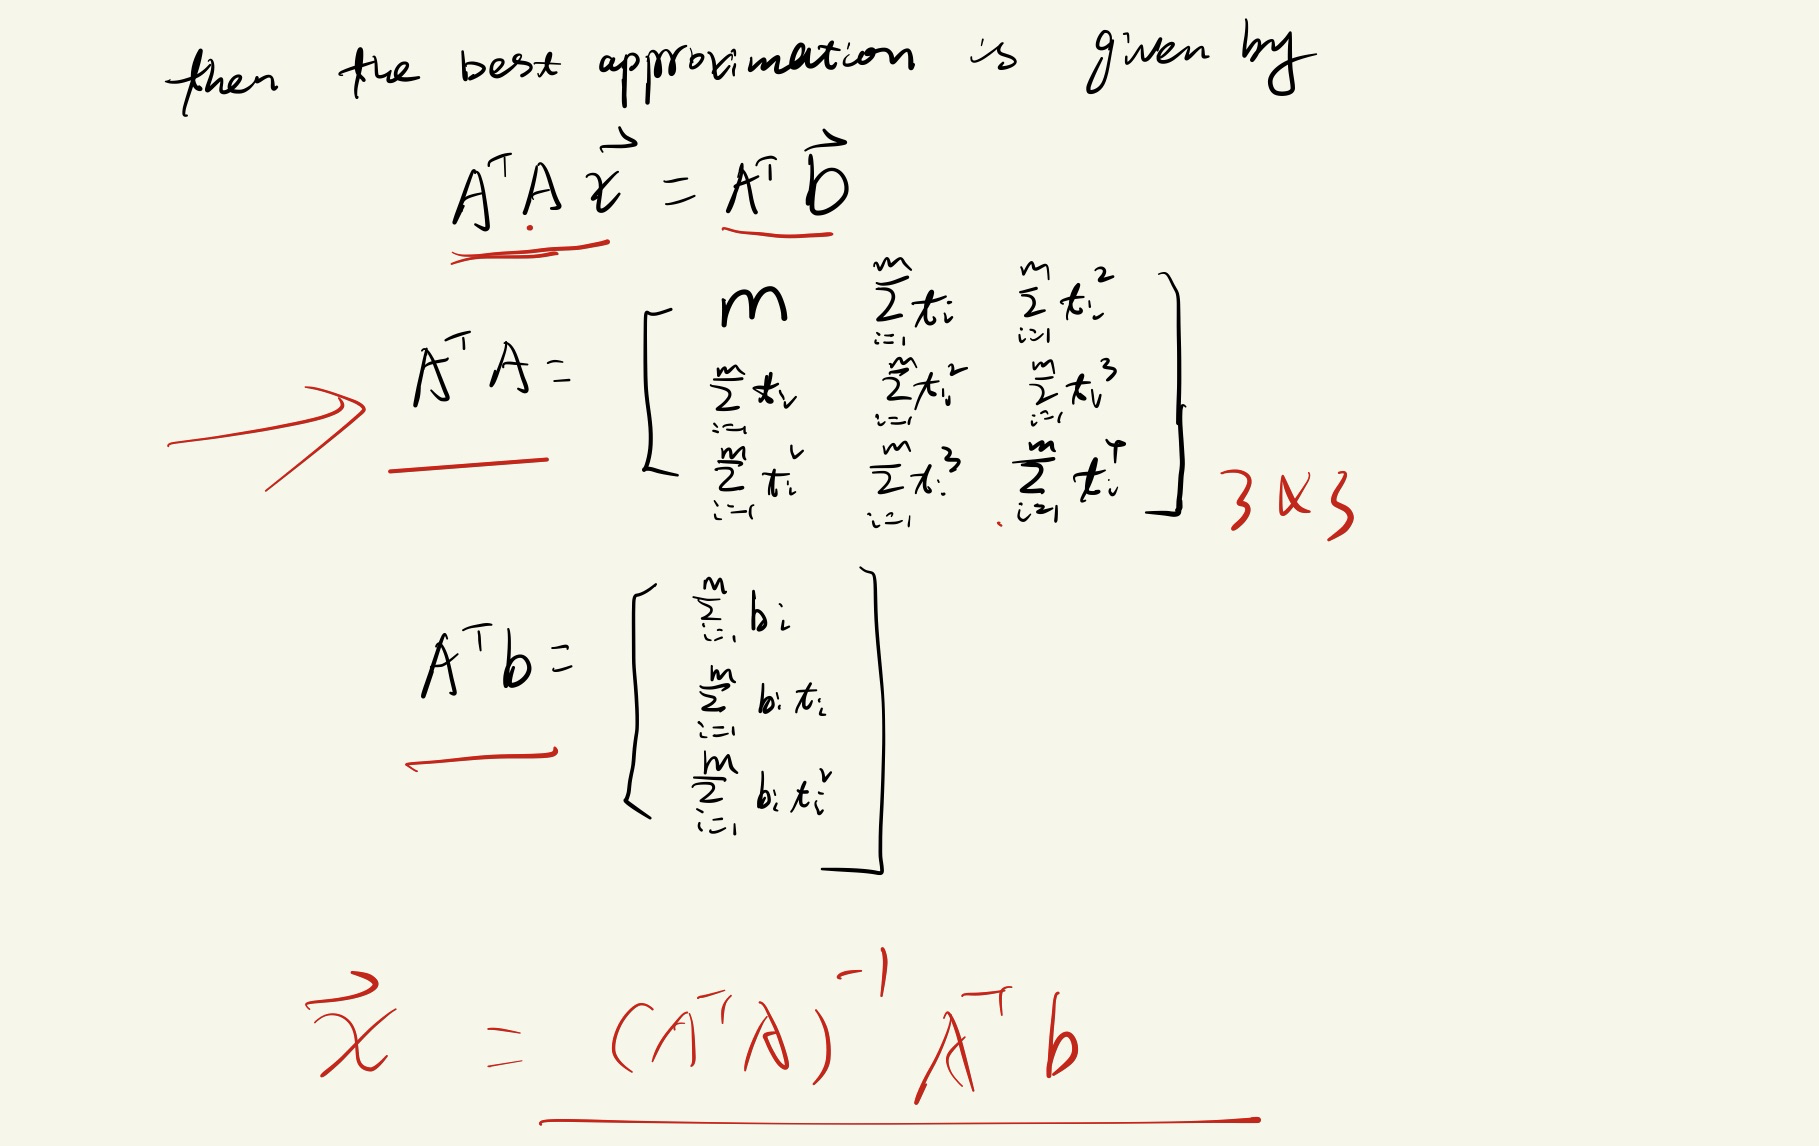 then the best approximation is given by
AᵀA x⃗ = Aᵀ b⃗
AᵀA = [ m  ∑_{i=1}^{m} tᵢ  ∑_{i=1}^{m} tᵢ²
∑_{i=1}^{m} tᵢ  ∑_{i=1}^{m} tᵢ²  ∑_{i=1}^{m} tᵢ³
∑_{i=1}^{m} tᵢ²  ∑_{i=1}^{m} tᵢ³  ∑_{i=1}^{m} tᵢ⁴ ] 3×3
Aᵀb = [ ∑_{i=1}^{m} bᵢ
∑_{i=1}^{m} bᵢ tᵢ
∑_{i=1}^{m} bᵢ tᵢ² ]
x⃗ = (AᵀA)⁻¹ Aᵀ b